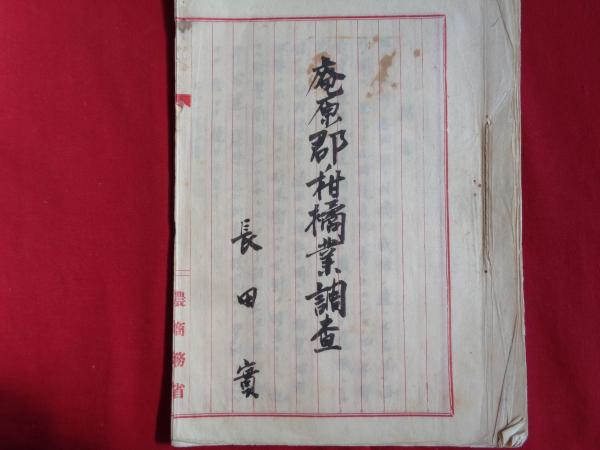 庵原郡柑橘業調査
長田實
農商務省